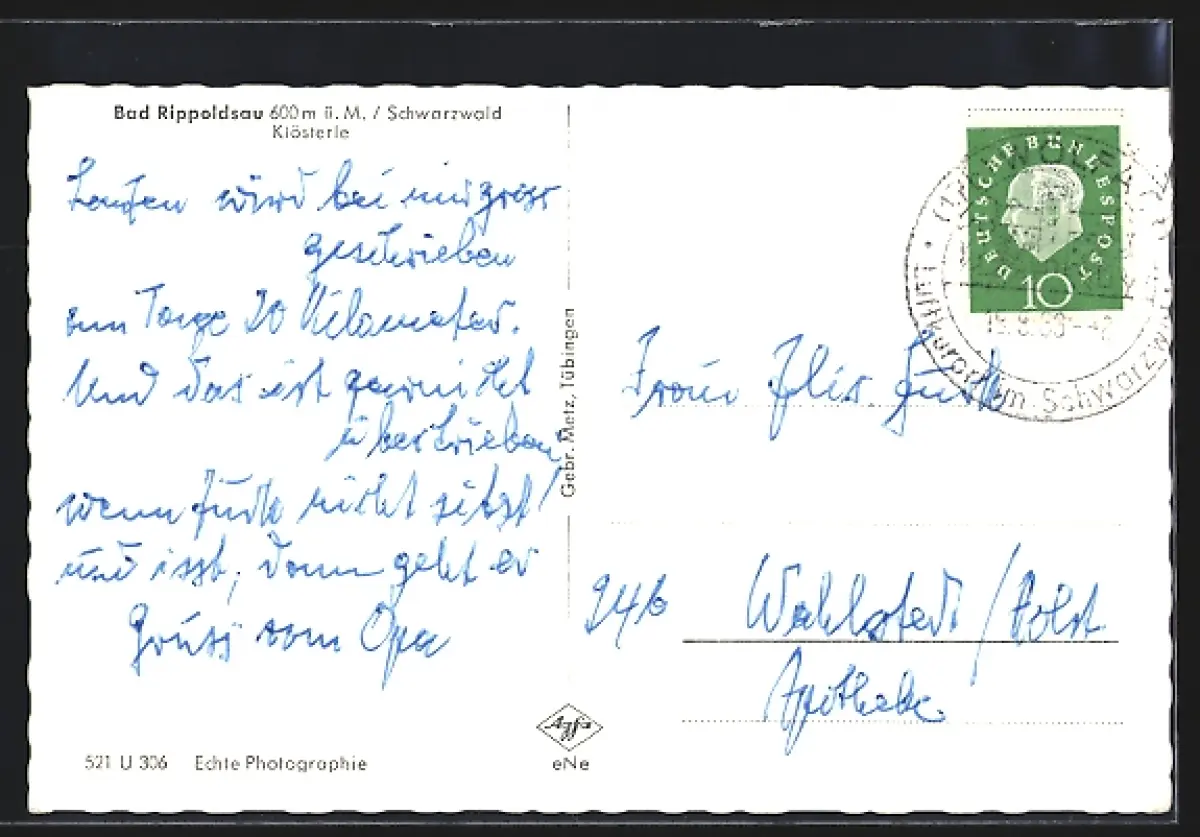 Bad Rippoldsau 600 m ü. M. / Schwarzwald
Klösterle
Laufen wird bei mir gross
geschrieben
am Tage 20 Kilometer.
Und das ist garnicht
übertrieben
wenn nicht sitzt
und isst, dann geht er
Gruss vom Opa
521 U 306 Echte Photographie
Gebr. Metz, Tübingen
Agfa
eNe
DEUTSCHE BUNDESPOST
10
Luftkurort im Schwarzw
Frau
24b Wahlstedt / Holst
Apotheke